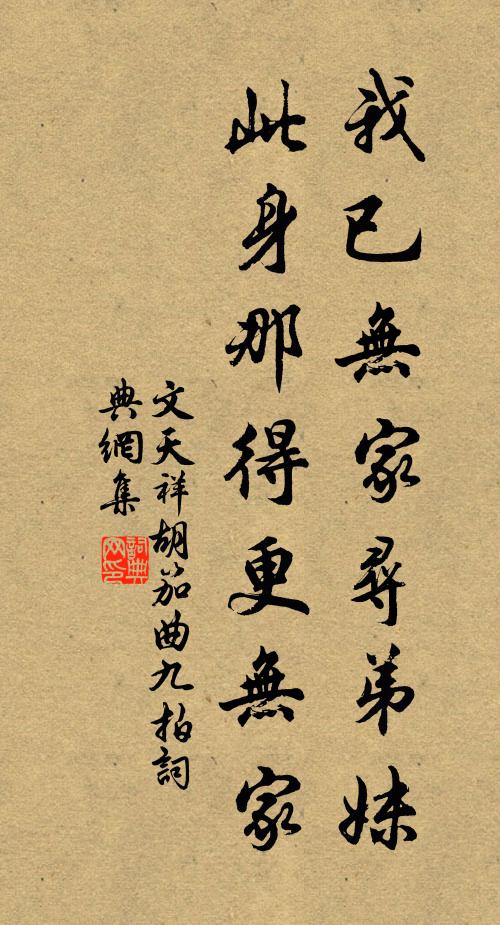 我已無家尋弟妹
此身那得更無家
文天祥胡笳曲九拍詞
典網集
詞典
网印